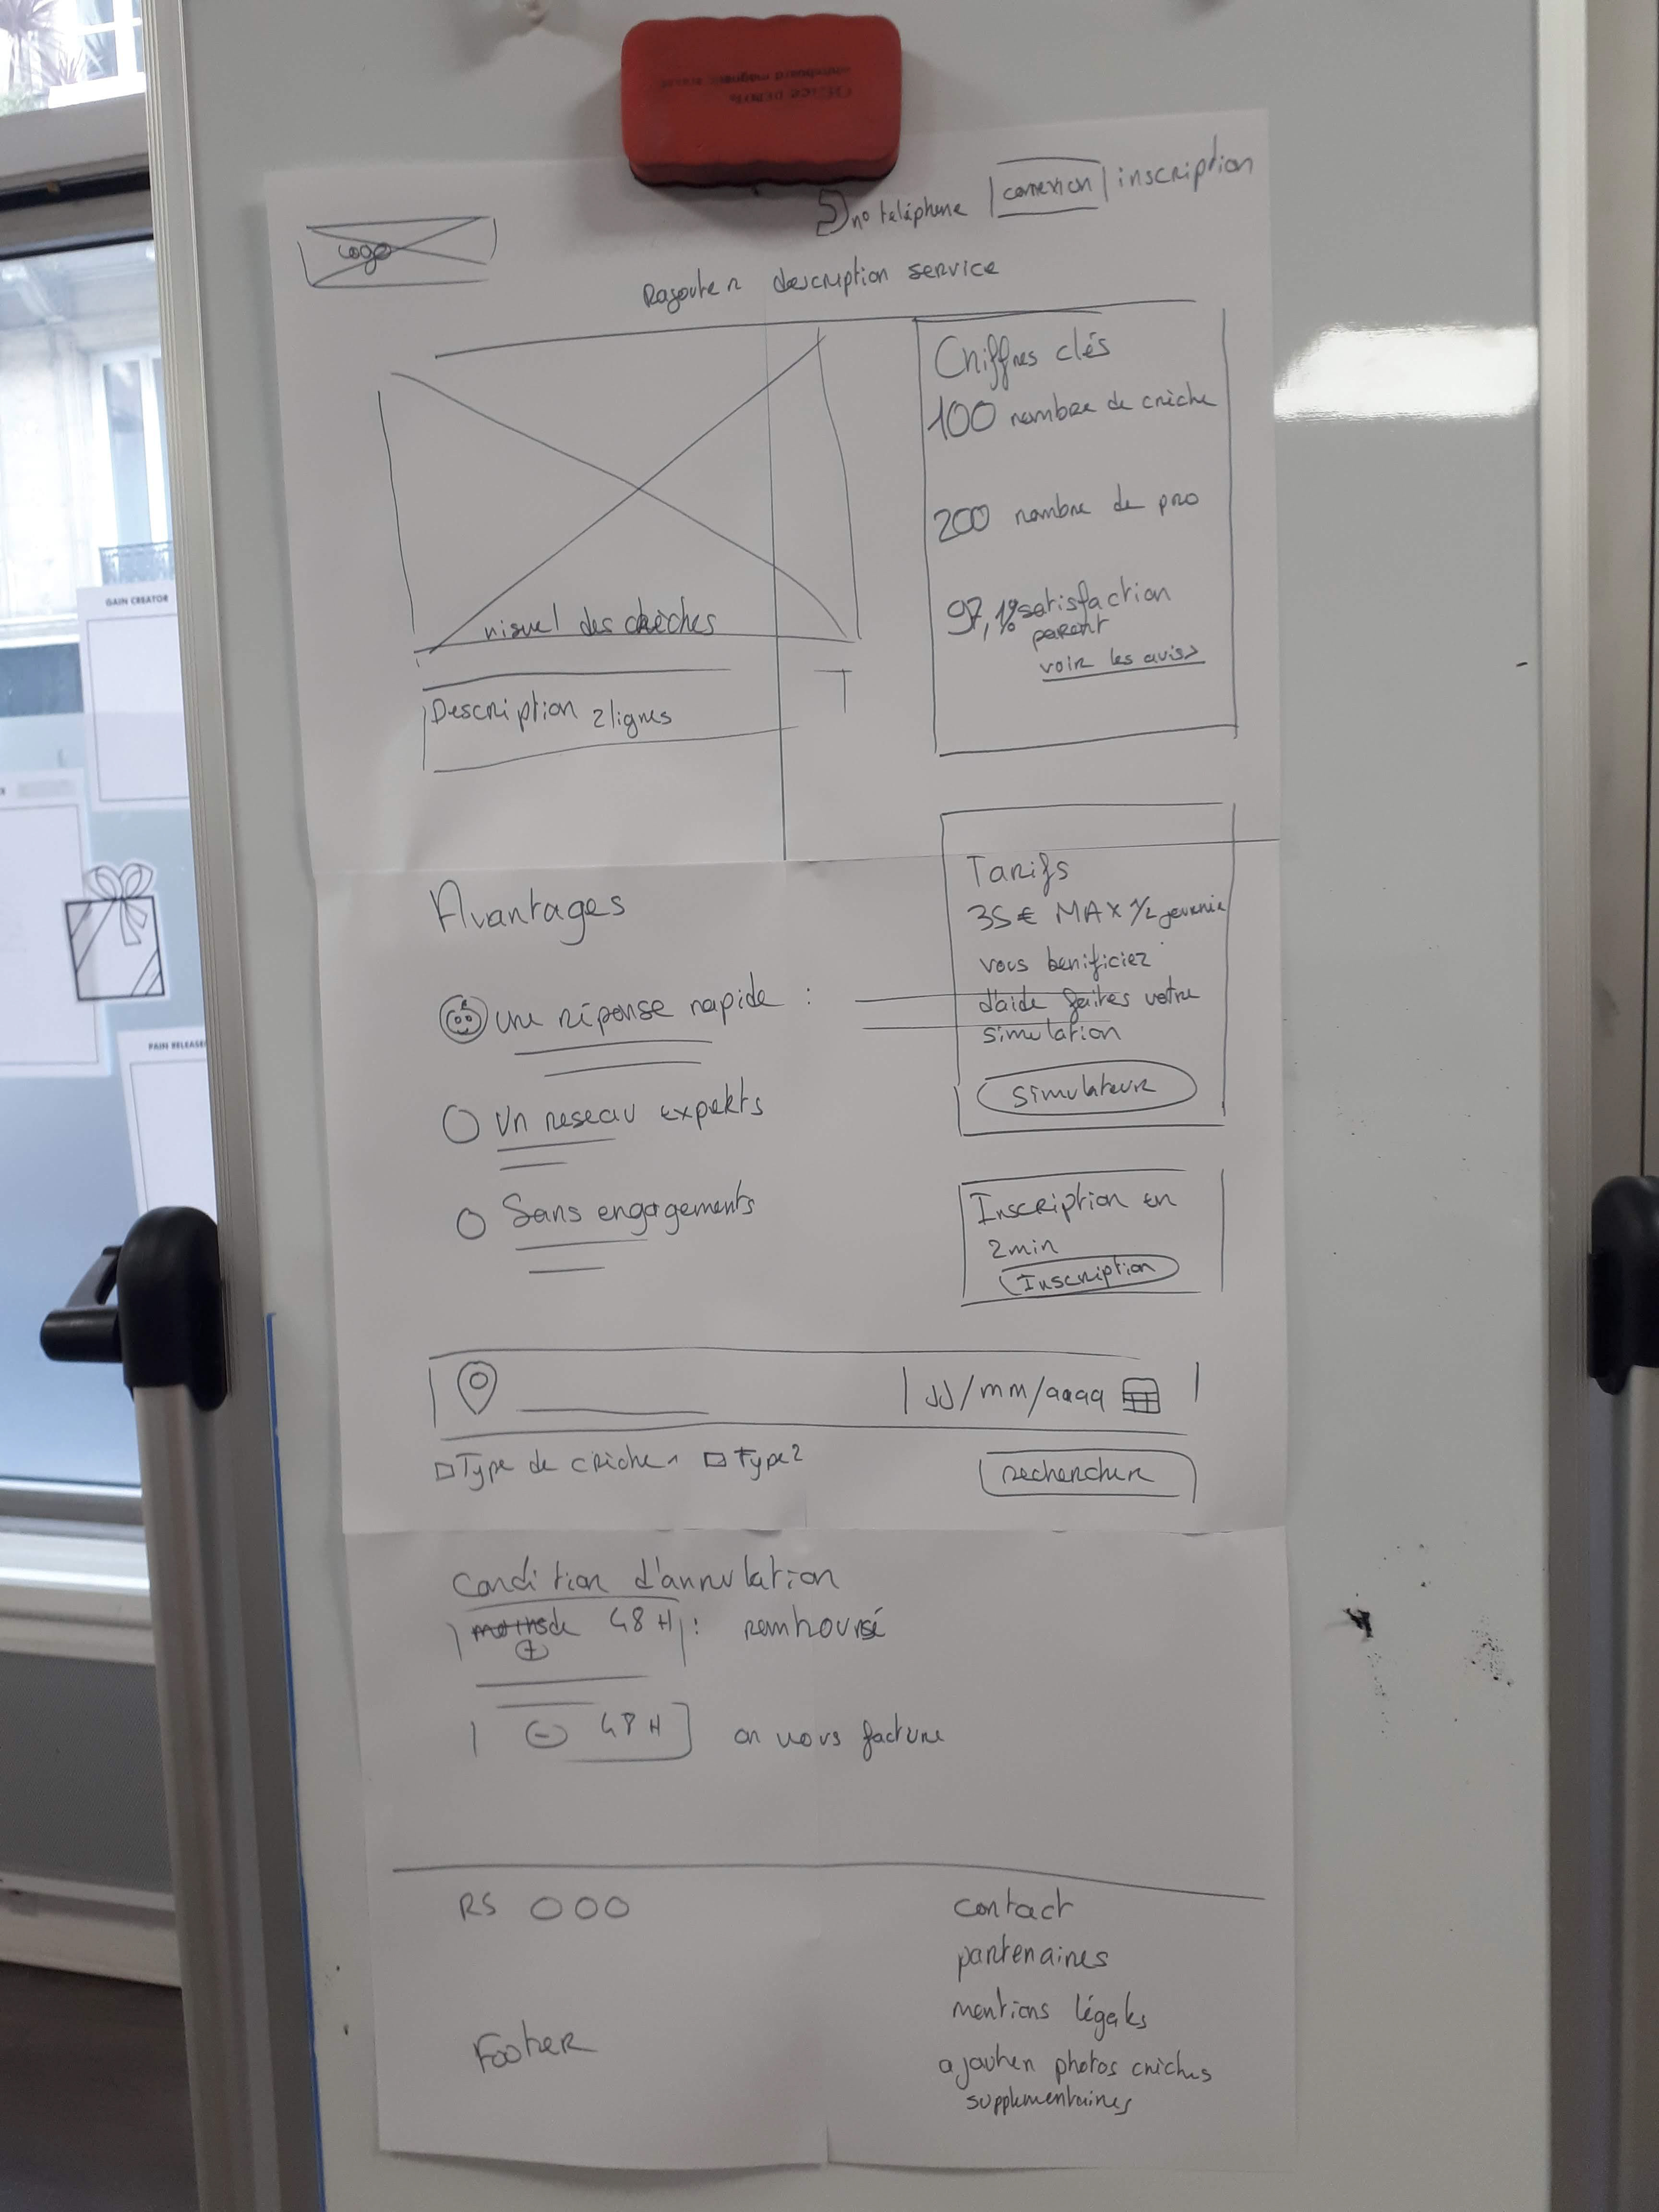 OFFICE DEPOT
whiteboard magnetic eraser
no téléphone | connexion | inscription
Logo
Rajouter description service
Chiffres clés
100 nombre de crèche
200 nombre de pro
97,1% satisfaction
parent
voir les avis>
visuel des crèches
Description 2 lignes
GAIN CREATOR
PAIN RELIEVER
Avantages
une réponse rapide :
Un reseau experts
Sans engagements
Tarifs
35€ MAX 1/2 journée
vous bénificiez
d'aide faites votre
simulation
simulateur
Inscription en
2min
Inscription
JJ/mm/aaaa
Type de crèche 1 Type 2
rechercher
Condition d'annulation
moins de 48H : remboursé
+
- 48H on vous facture
RS
contact
partenaires
mentions légales
Footer
ajouter photos crèches
supplementaires